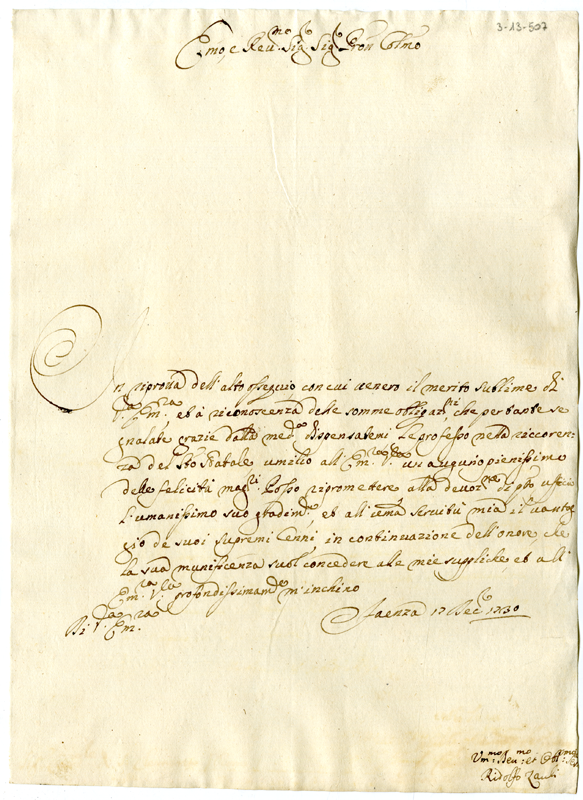 3-13-507
Emo, e Rev.mo Sig.r Sig.r Pron Colmo
In riprova dell'alto ossequio con cui venero il merito sublime di
V.ra Em.za et à riconoscenza delle somme obligaz.ni, che per tante se
gnalate grazie dalla med.a dispensatemi le professo nella riccoren
za del Sto Natale umilio all'Em.za V.ra un augurio pienissimo
delle felicità mag.ri. Posso ripromettere alla devoz.ne
l'umanissimo suo gradim.to, et all'um.a servitù mia il vantag
gio de suoi supremi cenni in continuazione dell'onore che
la sua munificenza suol concedere alle mie suppliche, et all'
Em.za V.ra profondissimam.te m'inchino
Di V.ra Em.za
Faenza 17 Dec.e 1730
Um.mo Dev.mo et Obl.mo
Ridolfo